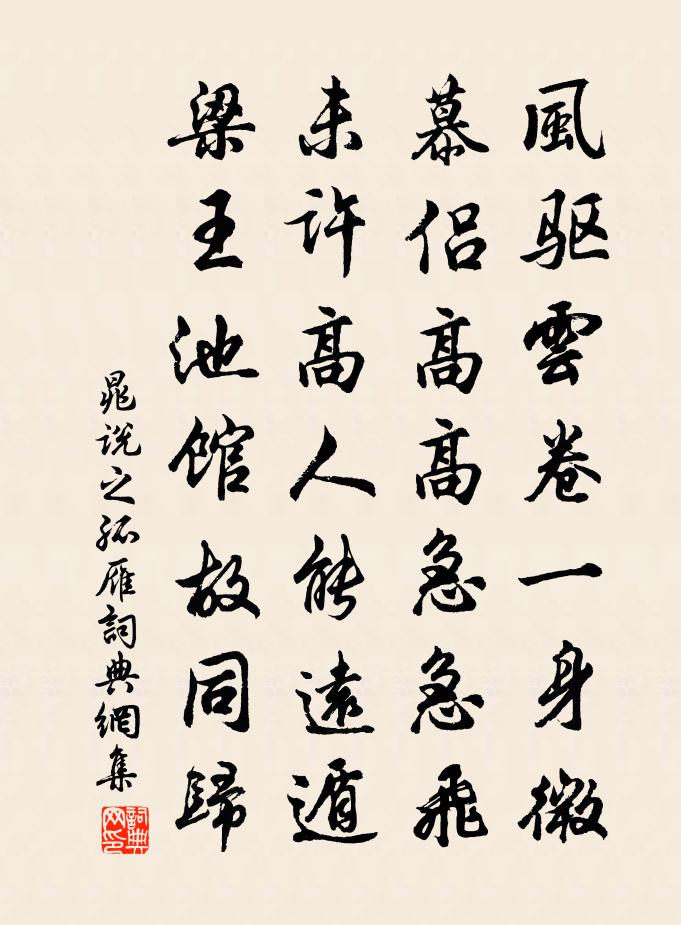 風驱雲卷一身微
慕侣高高急急飛
未許高人能遠遁
梁王池馆故同歸
晁说之孤雁詞典網集
詞典網印